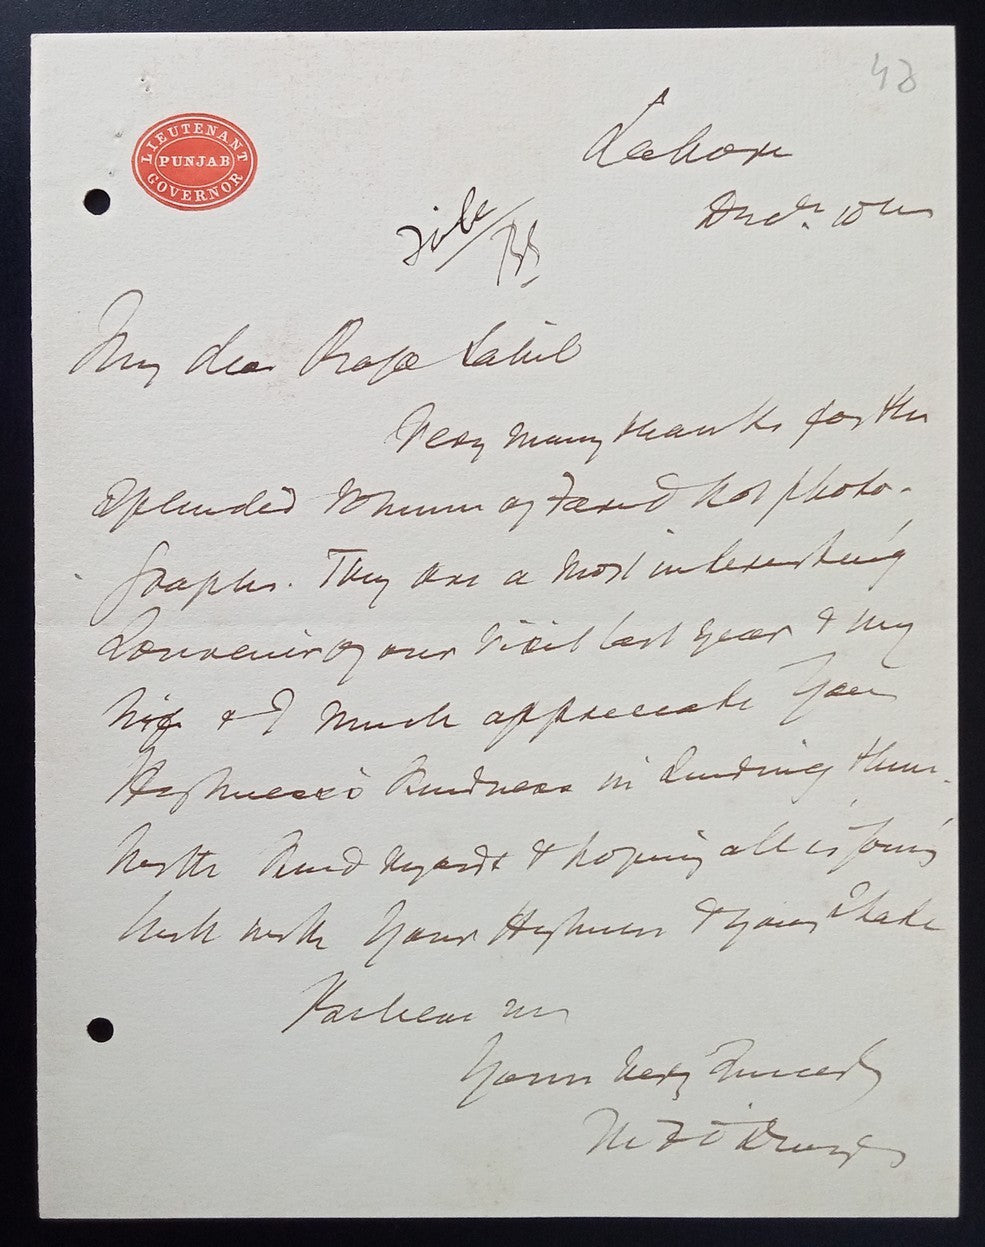 48
LIEUTENANT GOVERNOR
PUNJAB
Lahore
Decr. 10th
File
My dear Raja Sahib
Very many thanks for the
splendid volume of Faridkot photo-
graphs. They are a most interesting
souvenir of our visit last year & my
wife & I much appreciate Your
Highness's kindness in sending them.
With kind regards & hoping all is going
well with Your Highness & your State
believe me
Yours very sincerely
M F O'Dwyer